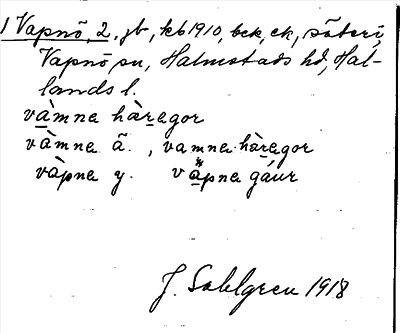 1 Vapnö, 2, jb, kb 1910, bck, ek, säteri,
Vapnö sn, Halmstads hd, Hal-
lands l.
vàmne hàregor
vàmne ä. , vamne hàregor
vàpne y. vàpne gáur
J. Sahlgren 1918